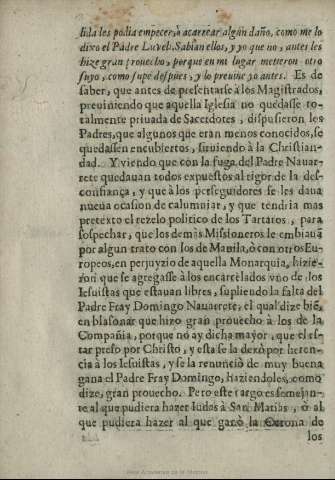 lida les podia empecer, ù acarrear algun daño, como me lo
dixo el Padre Luveli. Sabian ellos, y yo que no, antes les
hize gran prouecho, porque en mi lugar metieron otro
suyo, como supe despues, y lo preuine yo antes. Es de
saber, que antes de presentarse à los Magistrados,
preuiniendo que aquella Iglesia no quedasse to-
talmente priuada de Sacerdotes, dispusieron los
Padres, que algunos que eran menos conocidos, se
quedassen encubiertos, siruiendo à la Christian-
dad. Y viendo que con la fuga del Padre Nauar-
rete quedauan todos expuestos al rigor de la des-
confiança, y que à los perseguidores se les daua
nueua ocasion de calumniar, y que tendria mas
pretexto el rezelo politico de los Tartaros, para
sospechar, que los demàs Missioneros le embiauã
por algun trato con los de Manila, ò con otros Eu-
ropeos, en perjuyzio de aquella Monarquia, hizie-
ron que se agregasse à los encarcelados vno de los
Iesuistas que estauan libres, supliendo la falta del
Padre Fray Domingo Nauarrete, el qual dize biẽ,
en blasonar que hizo gran prouecho à los de la
Compañia, porque no ay dicha mayor, que el es-
tar preso por Christo, y esta se la dexò por heren-
cia à los Iesuistas, y se la renunciò de muy buena
gana el Padre Fray Domingo, haziendoles, como
dize, gran prouecho. Pero este cargo es semejan-
te al que pudiera hazer Iudas à San Matias, ò al
que pudiera hazer al que ganò la Corona de
los